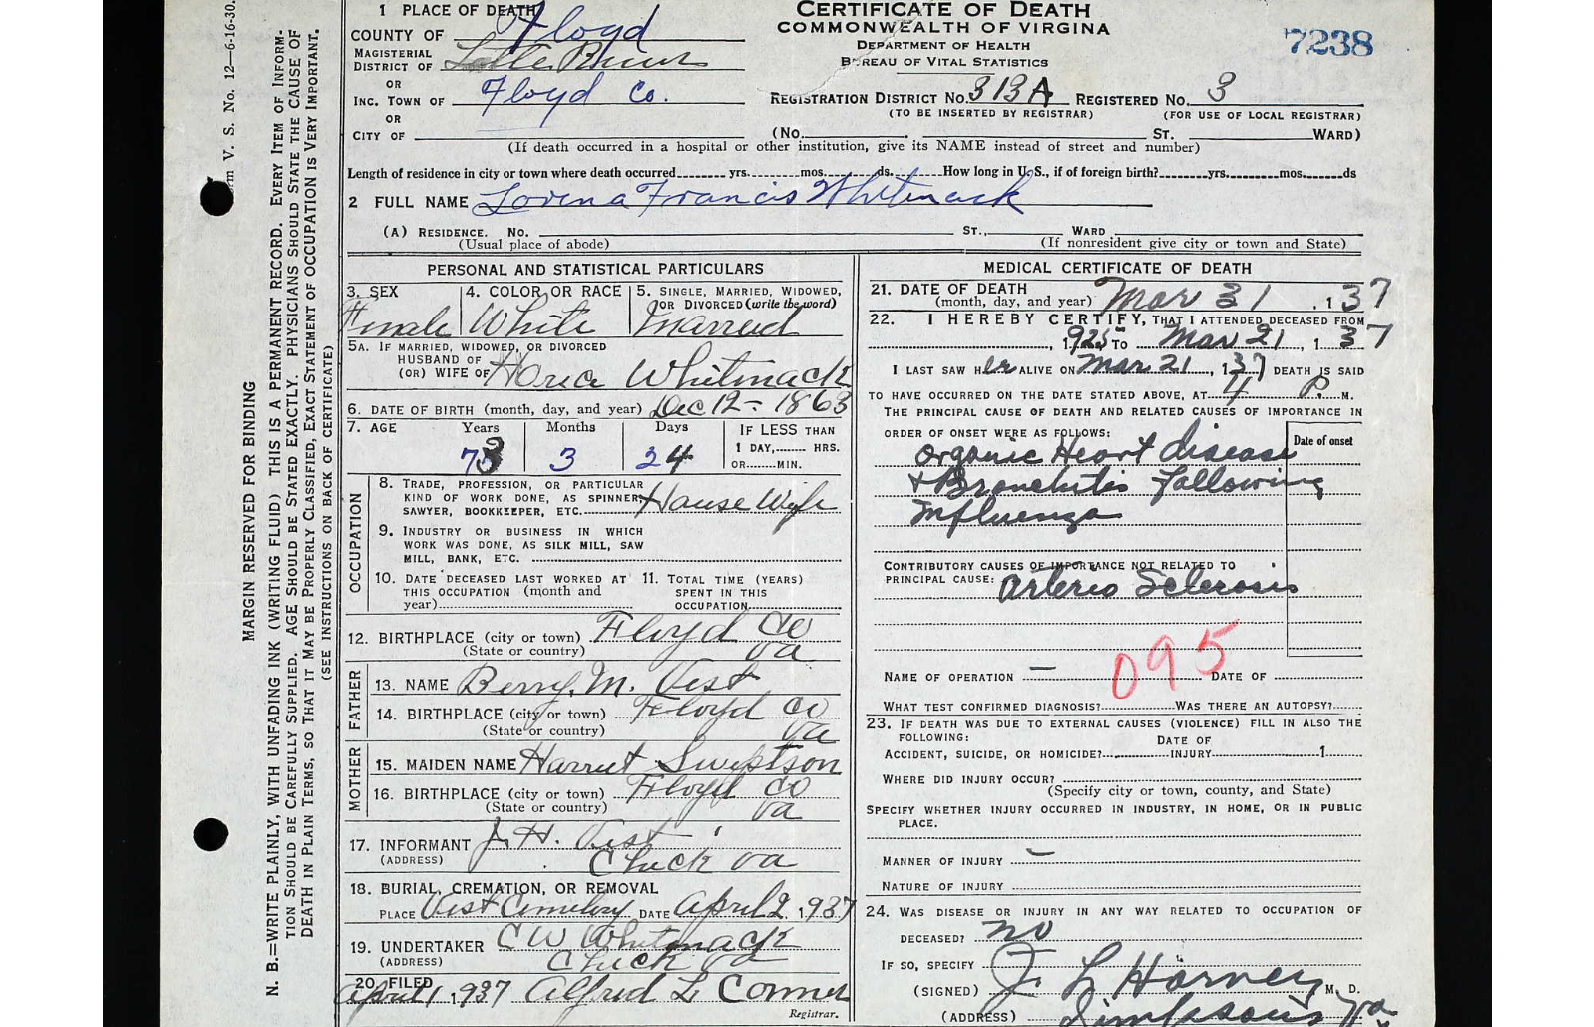 1 PLACE OF DEATH
COUNTY OF Floyd
MAGISTERIAL DISTRICT OF Little River
OR
INC. TOWN OF Floyd Co.
OR
CITY OF
CERTIFICATE OF DEATH
COMMONWEALTH OF VIRGINIA
DEPARTMENT OF HEALTH
BUREAU OF VITAL STATISTICS
7238
REGISTRATION DISTRICT NO. 313A REGISTERED NO. 3
(TO BE INSERTED BY REGISTRAR) (FOR USE OF LOCAL REGISTRAR)
(No. ST. WARD)
(If death occurred in a hospital or other institution, give its NAME instead of street and number)
Length of residence in city or town where death occurred yrs. mos. ds. How long in U.S., if of foreign birth? yrs. mos. ds
2 FULL NAME Lovena Francis Whitmack
(A) RESIDENCE. No. ST., WARD
(Usual place of abode) (If nonresident give city or town and State)
PERSONAL AND STATISTICAL PARTICULARS
3. SEX 4. COLOR OR RACE 5. SINGLE, MARRIED, WIDOWED, OR DIVORCED (write the word)
Female White Married
5A. IF MARRIED, WIDOWED, OR DIVORCED
HUSBAND OF
(OR) WIFE OF Whitmack
6. DATE OF BIRTH (month, day, and year) Dec 12 - 1863
7. AGE Years Months Days IF LESS THAN
1 DAY, HRS.
73 3 24 OR MIN.
OCCUPATION
8. TRADE, PROFESSION, OR PARTICULAR
KIND OF WORK DONE, AS SPINNER,
SAWYER, BOOKKEEPER, ETC. House Wife
9. INDUSTRY OR BUSINESS IN WHICH
WORK WAS DONE, AS SILK MILL, SAW
MILL, BANK, ETC.
10. DATE DECEASED LAST WORKED AT THIS OCCUPATION (month and year)
11. TOTAL TIME (YEARS) SPENT IN THIS OCCUPATION
12. BIRTHPLACE (city or town) Floyd Co
(State or country) Va
FATHER
13. NAME Berry M. Vest
14. BIRTHPLACE (city or town) Floyd Co
(State or country) Va
MOTHER
15. MAIDEN NAME Harriet
16. BIRTHPLACE (city or town) Floyd Co
(State or country) Va
17. INFORMANT J. H. Vest
(ADDRESS) Check Va
18. BURIAL, CREMATION, OR REMOVAL
PLACE Vest Cemetery DATE April 2, 1937
19. UNDERTAKER C W Whitmack
(ADDRESS) Check Va
20. FILED
April 1, 1937 Alfred L. Conner
Registrar.
MEDICAL CERTIFICATE OF DEATH
21. DATE OF DEATH
(month, day, and year) Mar 31, 137
22. I HEREBY CERTIFY, THAT I ATTENDED DECEASED FROM
1925 TO Mar 21, 137
I LAST SAW Her ALIVE ON Mar 21, 137 DEATH IS SAID
TO HAVE OCCURRED ON THE DATE STATED ABOVE, AT 4 P. M.
THE PRINCIPAL CAUSE OF DEATH AND RELATED CAUSES OF IMPORTANCE IN
ORDER OF ONSET WERE AS FOLLOWS: Date of onset
Organic Heart disease
+ Bronchitis following
Influenza
CONTRIBUTORY CAUSES OF IMPORTANCE NOT RELATED TO
PRINCIPAL CAUSE: Arterio Sclerosis
095
NAME OF OPERATION — DATE OF
WHAT TEST CONFIRMED DIAGNOSIS? WAS THERE AN AUTOPSY?
23. IF DEATH WAS DUE TO EXTERNAL CAUSES (VIOLENCE) FILL IN ALSO THE
FOLLOWING: DATE OF
ACCIDENT, SUICIDE, OR HOMICIDE? INJURY 1
WHERE DID INJURY OCCUR?
(Specify city or town, county, and State)
SPECIFY WHETHER INJURY OCCURRED IN INDUSTRY, IN HOME, OR IN PUBLIC
PLACE.
MANNER OF INJURY —
NATURE OF INJURY
24. WAS DISEASE OR INJURY IN ANY WAY RELATED TO OCCUPATION OF
DECEASED? no
IF SO, SPECIFY
(SIGNED) J. L. Harvey, M. D.
(ADDRESS) Simpsons Va
rm V. S. No. 12—6-16-30.
MARGIN RESERVED FOR BINDING
N. B.=WRITE PLAINLY, WITH UNFADING INK (WRITING FLUID) THIS IS A PERMANENT RECORD. EVERY ITEM OF INFORM-
TION SHOULD BE CAREFULLY SUPPLIED. AGE SHOULD BE STATED EXACTLY. PHYSICIANS SHOULD STATE THE CAUSE OF
DEATH IN PLAIN TERMS, SO THAT IT MAY BE PROPERLY CLASSIFIED, EXACT STATEMENT OF OCCUPATION IS VERY IMPORTANT.
(SEE INSTRUCTIONS ON BACK OF CERTIFICATE)